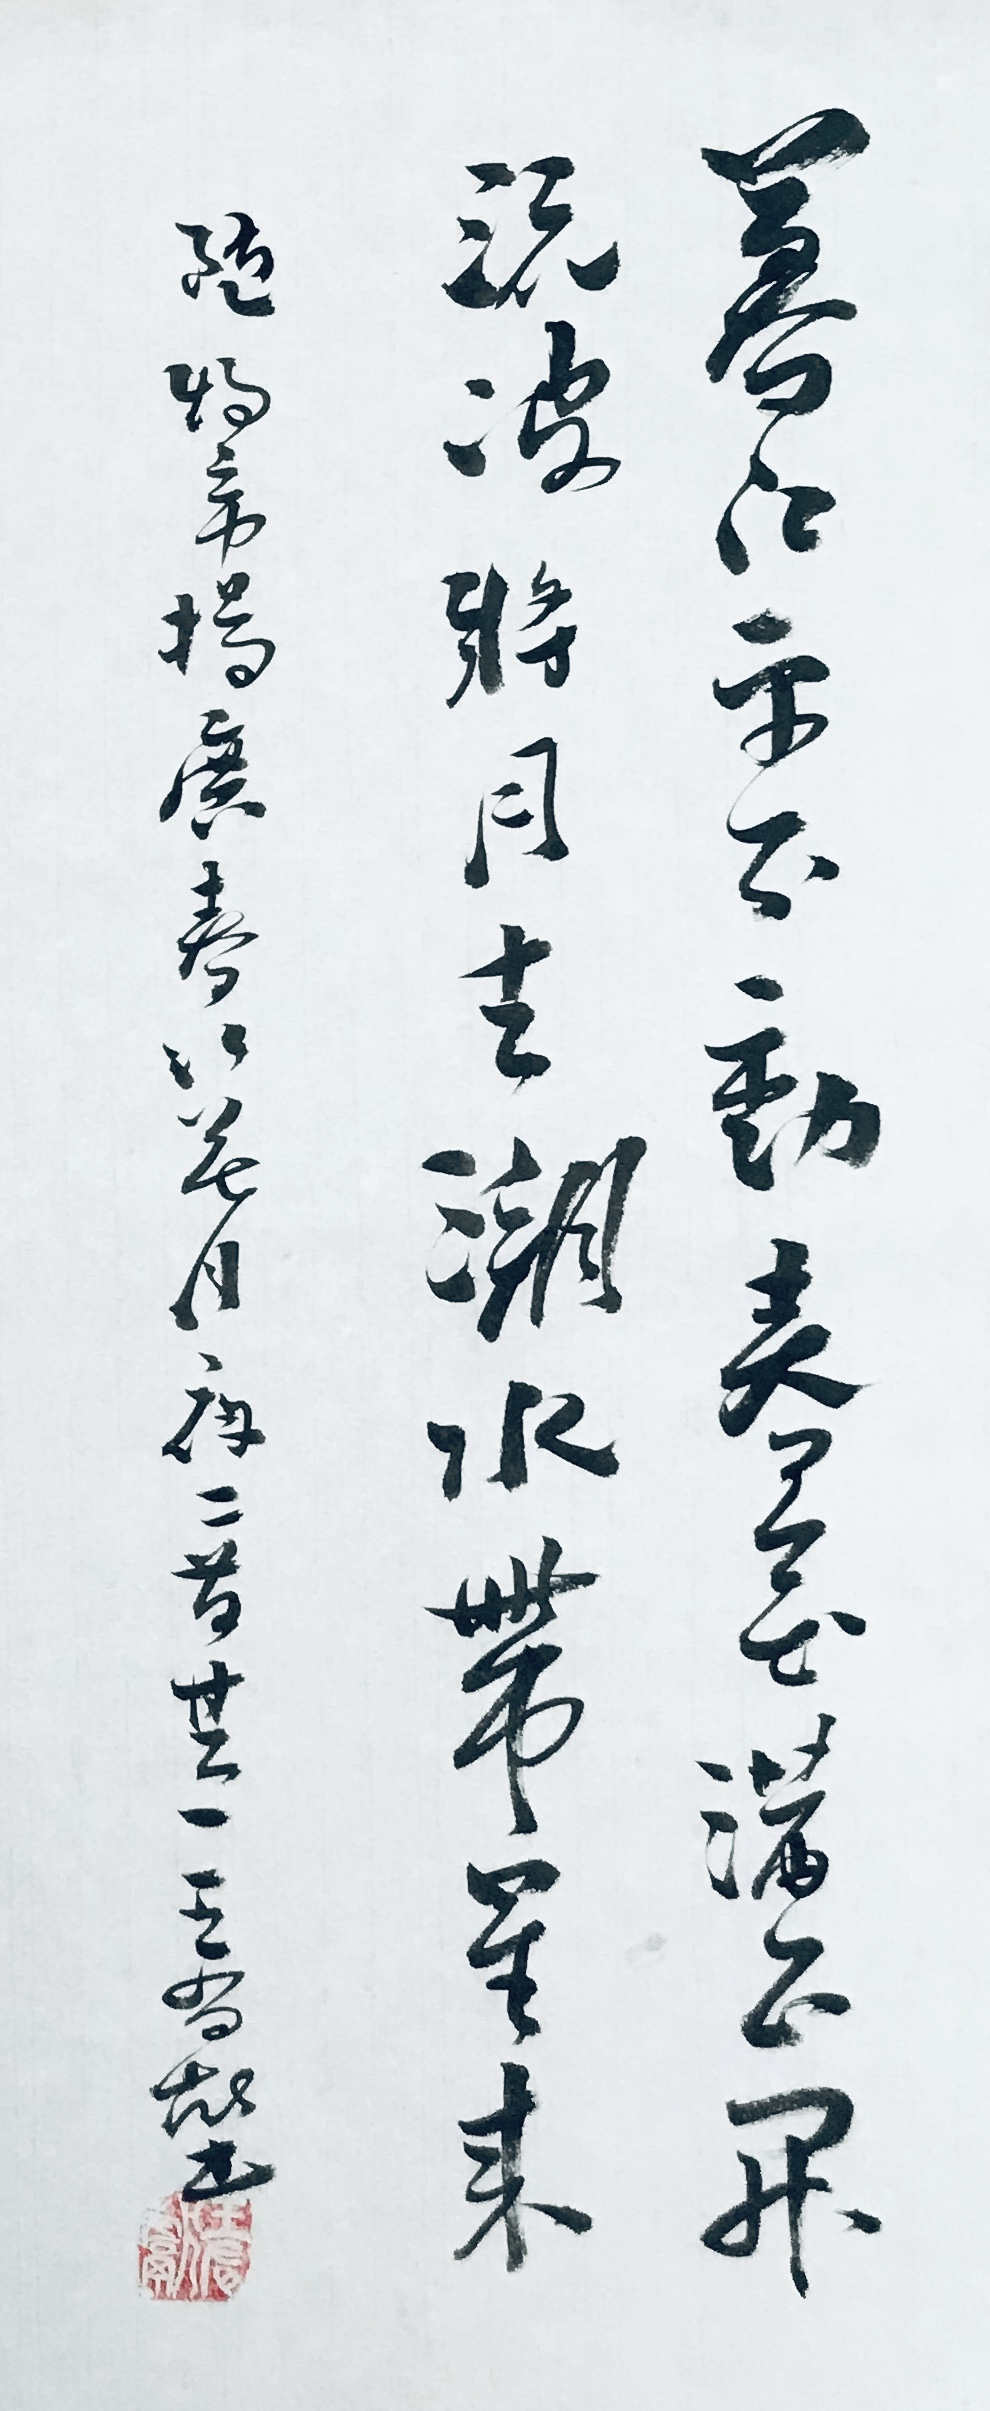 暮江平不動春花滿正開
流波將月去潮水帶星來
隨煬帝楊廣春江花月夜二首其一 王書